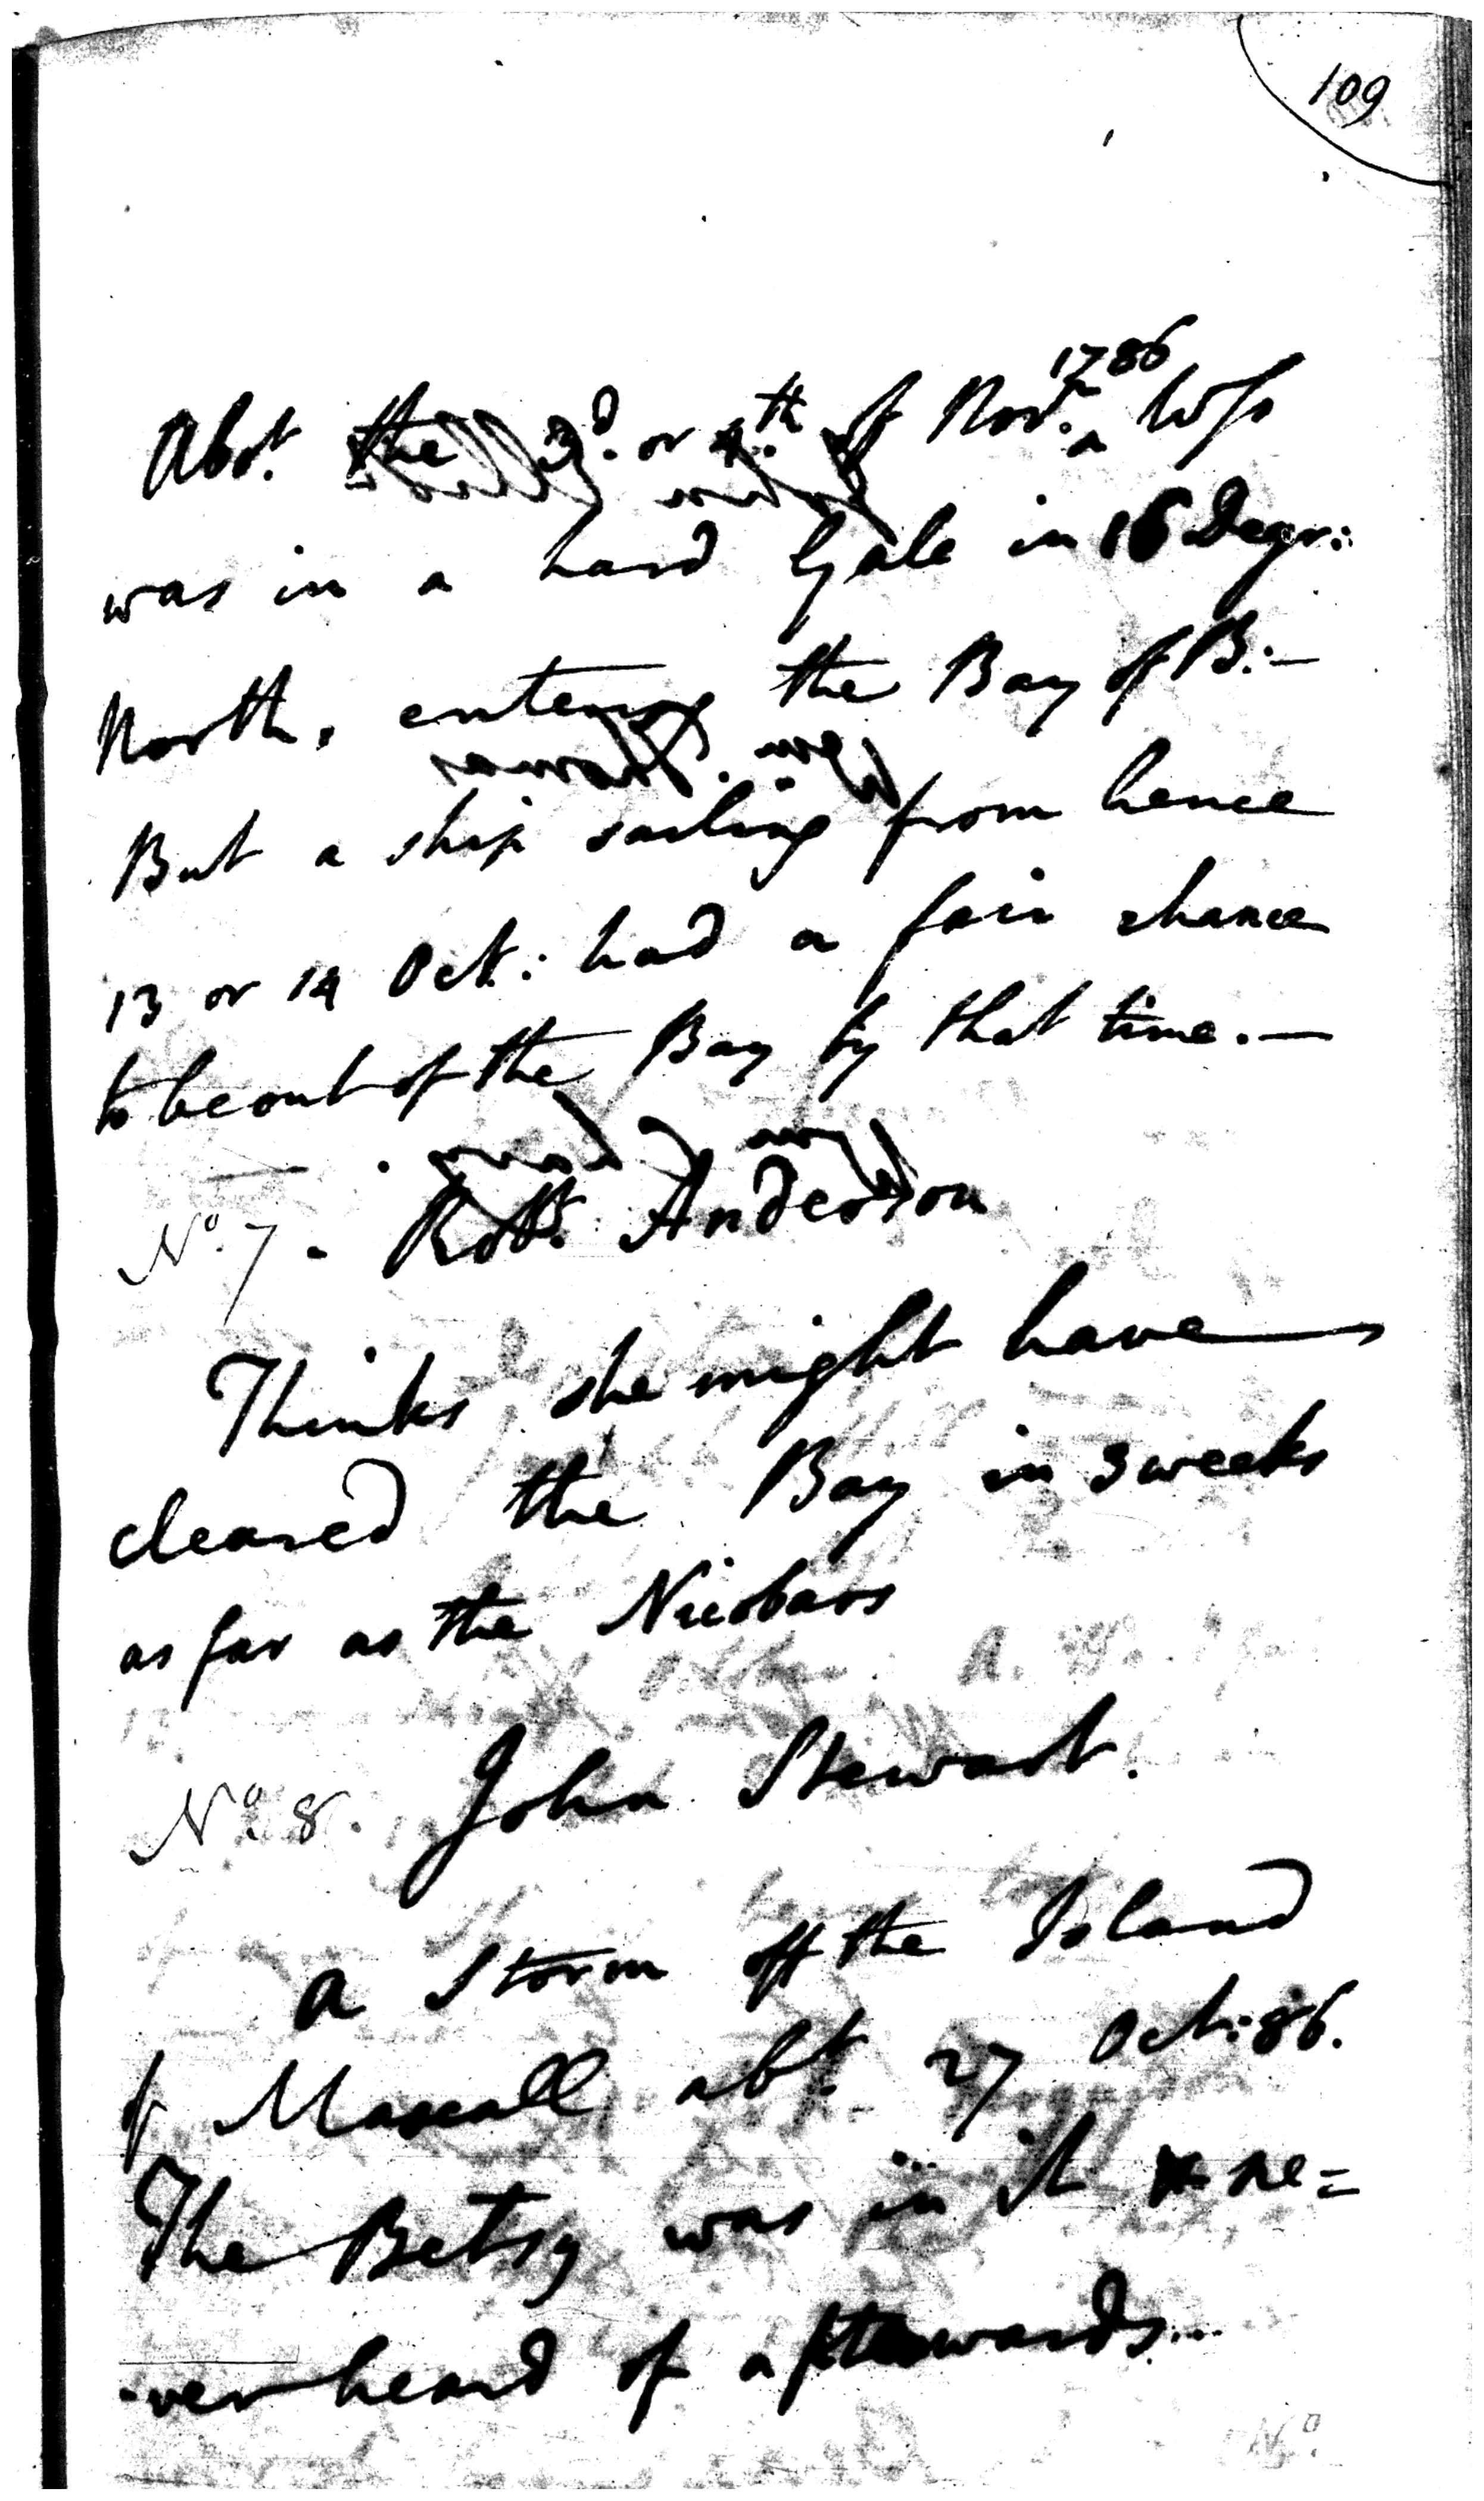 109
1786
Abt. the 3d. or 4th. of Novr. ^
was in a hard Gale in 16 Degr:
North, entering the Bay of B:—
But a ship sailing from hence
13 or 14 Oct.: had a fair chance
to be out of the Bay by that time.—
No. 7 - Robt. Anderson
Thinks she might have
cleared the Bay in 3 weeks
as far as the Nicobars
No. 8. John Stewart.
A Storm off the Island
of Mascall abt. 27 Oct: 86.
The Betsy was in it ne=
-ver heard of afterwards...
No.